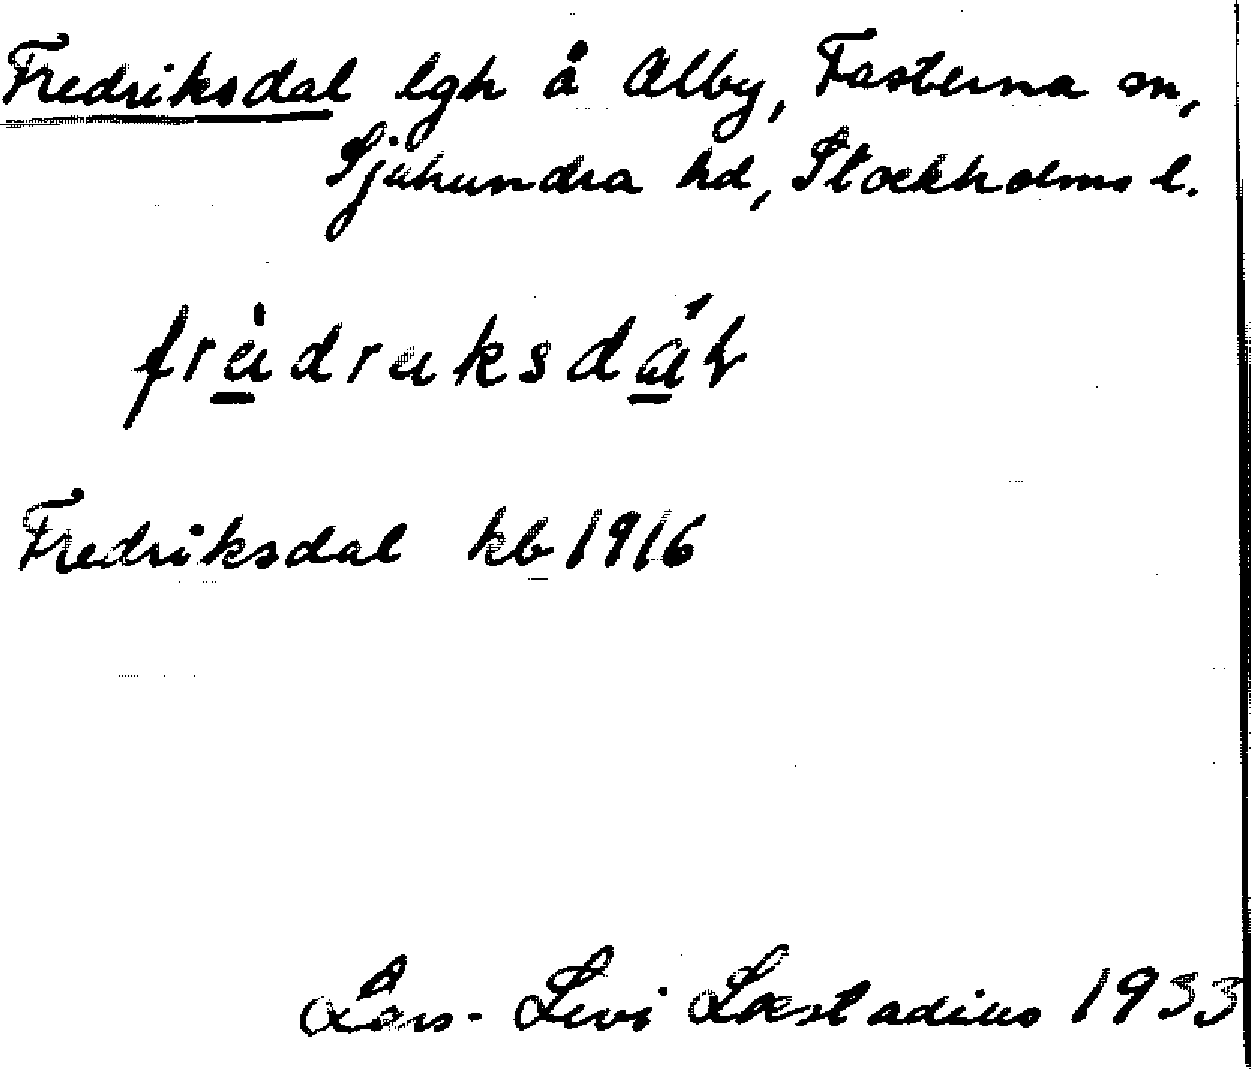 Fredriksdal lgh å Alby, Fasterna sn,
Sjuhundra hd, Stockholms l.
Fredriksdal kb 1916
Lars-Levi Læstadius 1933